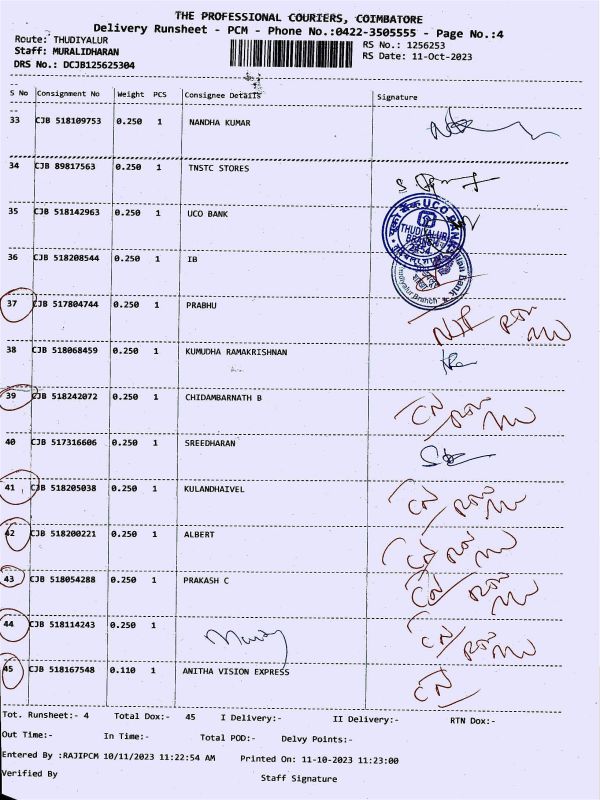 THE PROFESSIONAL COURIERS, COIMBATORE
Delivery Runsheet - PCM - Phone No.:0422-3505555 - Page No.:4
Route: THUDIYALUR RS No.: 1256253
Staff: MURALIDHARAN RS Date: 11-Oct-2023
DRS No.: DCJB125625304
S No Consignment No Weight PCS Consignee Details Signature
33 CJB 518109753 0.250 1 NANDHA KUMAR
34 CJB 89817563 0.250 1 TNSTC STORES
35 CJB 518142963 0.250 1 UCO BANK
UCO BANK
THUDIYALUR
BRANCH
36 CJB 518208544 0.250 1 IB
37 CJB 517804744 0.250 1 PRABHU
38 CJB 518068459 0.250 1 KUMUDHA RAMAKRISHNAN
39 CJB 518242072 0.250 1 CHIDAMBARNATH B
40 CJB 517316606 0.250 1 SREEDHARAN
41 CJB 518205038 0.250 1 KULANDHAIVEL
42 CJB 518200221 0.250 1 ALBERT
43 CJB 518054288 0.250 1 PRAKASH C
44 CJB 518114243 0.250 1
45 CJB 518167548 0.110 1 ANITHA VISION EXPRESS
Tot. Runsheet:- 4 Total Dox:- 45 I Delivery:- II Delivery:- RTN Dox:-
Out Time:- In Time:- Total POD:- Delvy Points:-
Entered By :RAJIPCM 10/11/2023 11:22:54 AM Printed On: 11-10-2023 11:23:00
Verified By Staff Signature